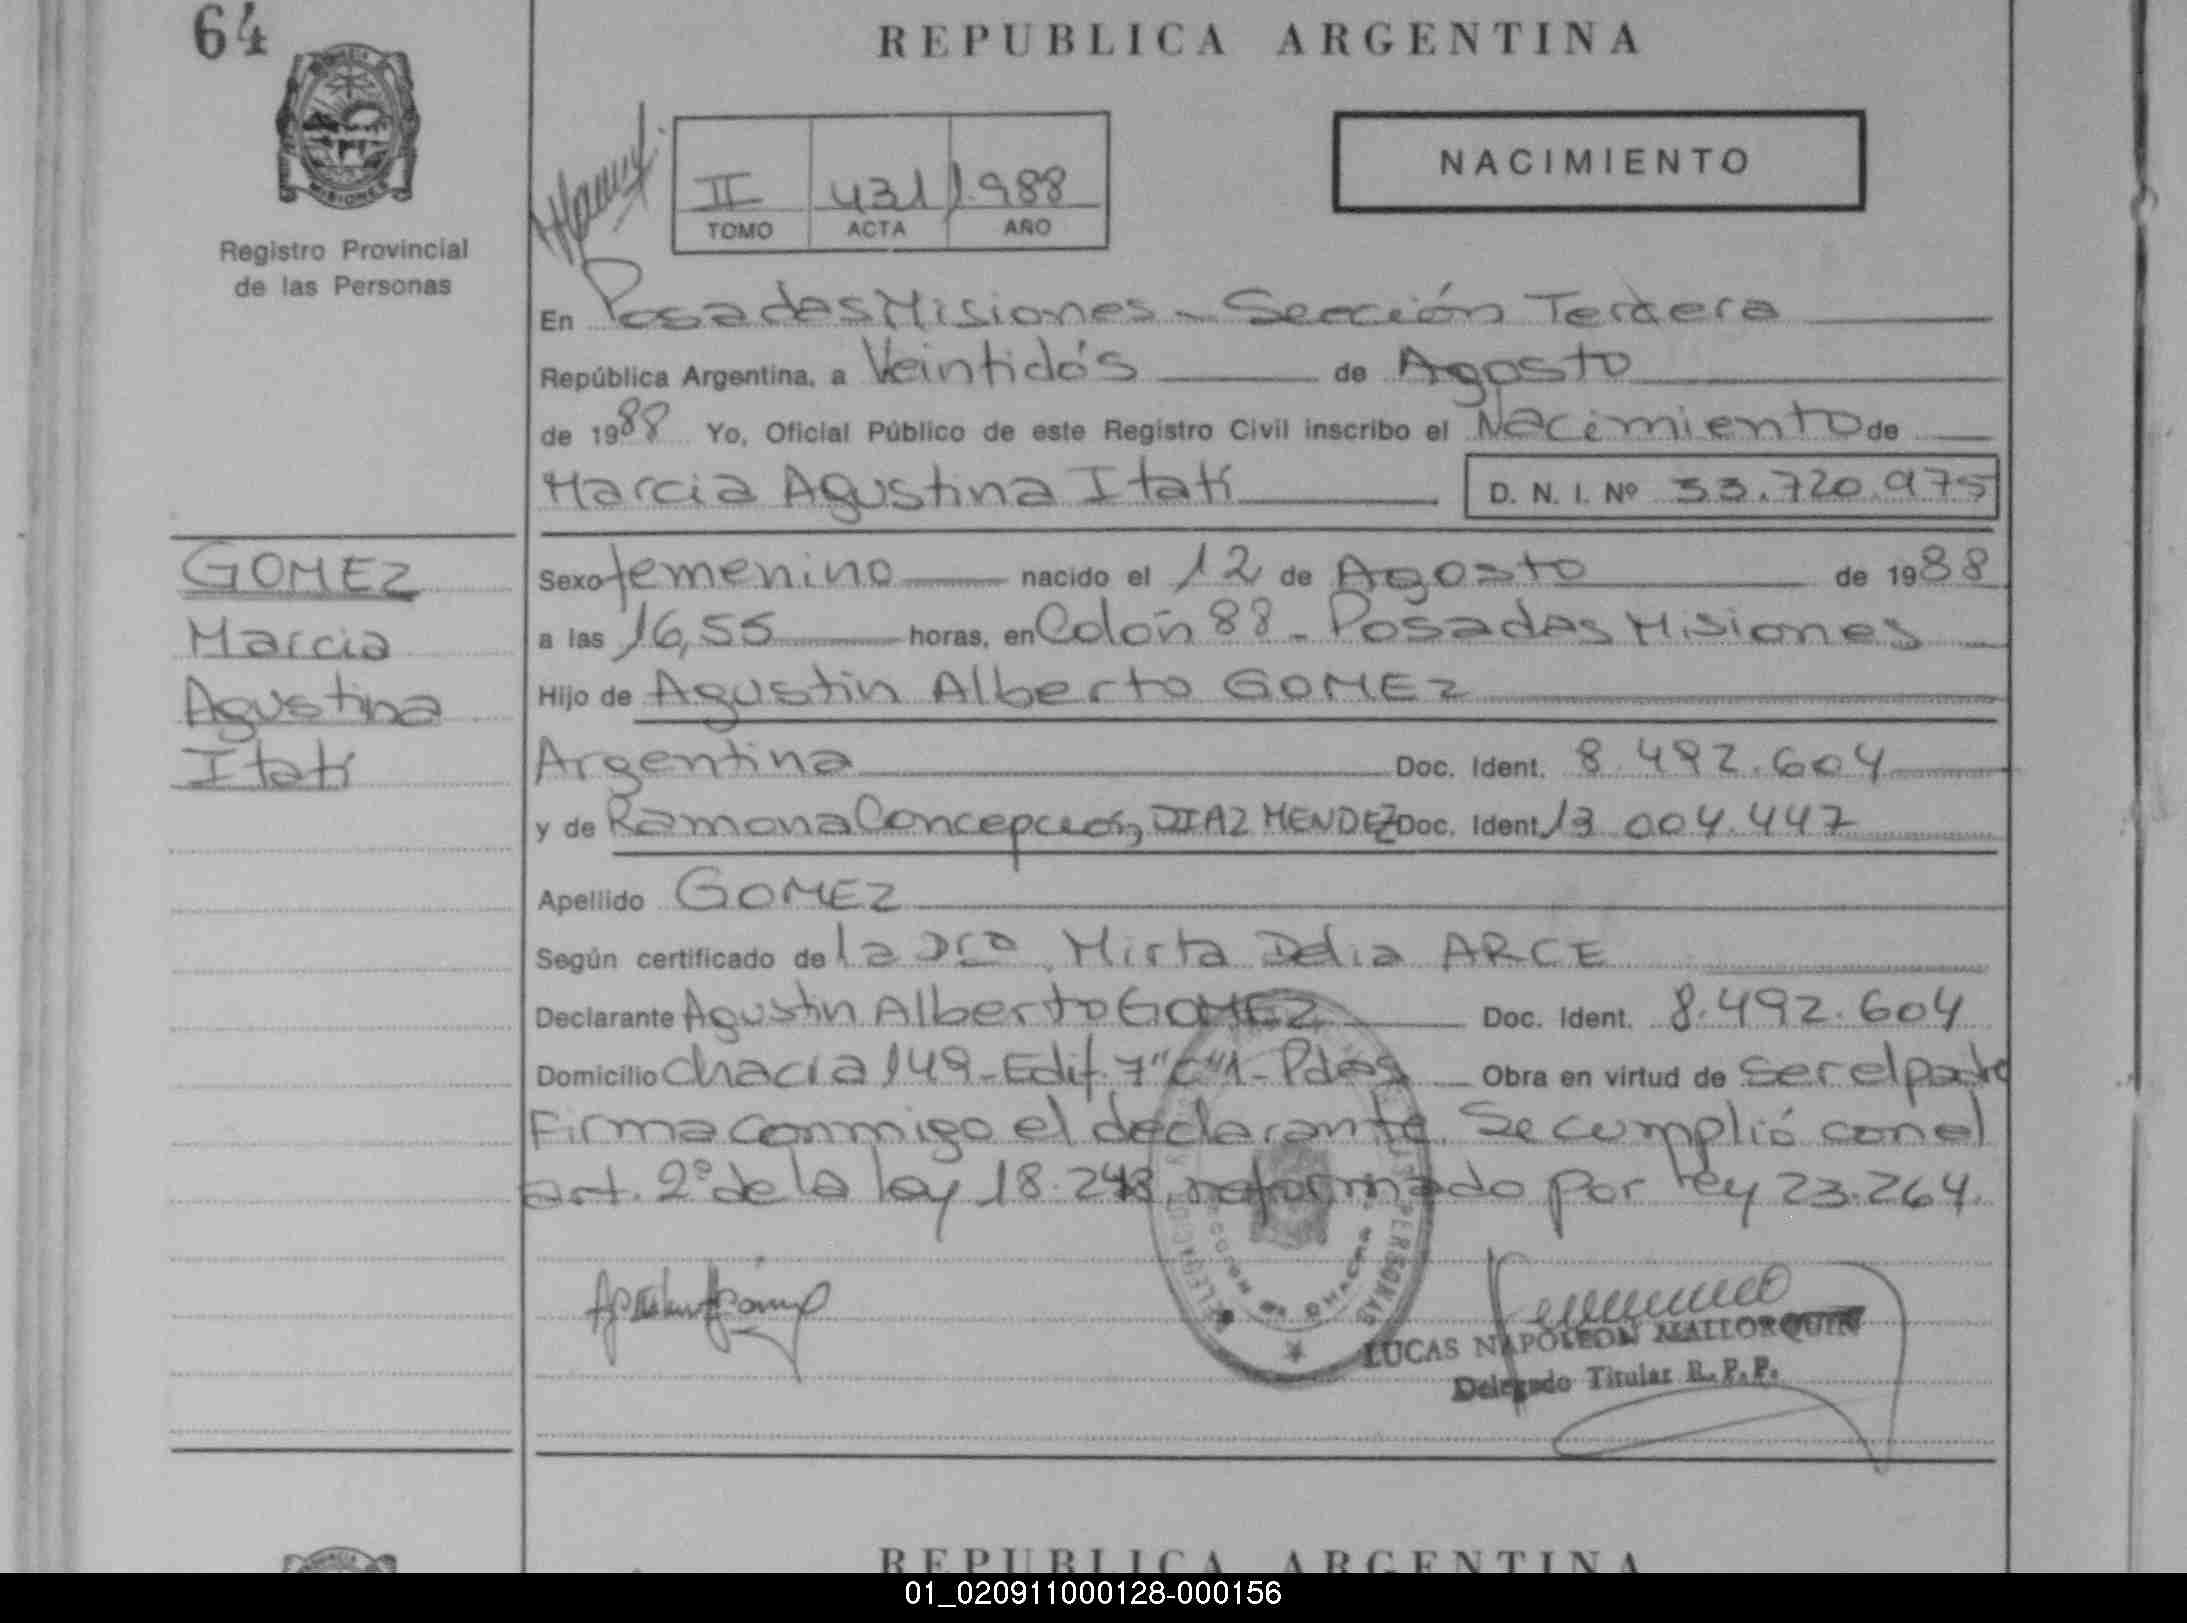 64
REPUBLICA ARGENTINA
MISIONES
Registro Provincial
de las Personas
II 431 1.988
TOMO ACTA AÑO
NACIMIENTO
En Posadas Misiones - Sección Tercera
República Argentina, a Veintidós de Agosto
de 1988 Yo, Oficial Público de este Registro Civil inscribo el Nacimiento de
Marcia Agustina Itatí D. N. I. Nº 33.720.975
GOMEZ
Marcia
Agustina
Itatí
Sexo femenino nacido el 12 de Agosto de 1988
a las 16,55 horas, en Colón 88 - Posadas Misiones
Hijo de Agustin Alberto GOMEZ
Argentina Doc. Ident. 8.492.604
y de Ramona Concepción DIAZ MENDEZ Doc. Ident. 13.004.447
Apellido GOMEZ
Según certificado de la Dra. Mirta Delia ARCE
Declarante Agustin Alberto GOMEZ Doc. Ident. 8.492.604
Domicilio chacra 149 - Edif. 7 "C" 1 - Pdas Obra en virtud de ser el padre
Firma conmigo el declarante. Se cumplió con el
art. 2º de la ley 18.248 reformado por ley 23.264.
PERSONAS
LUCAS NAPOLEON MALLORQUIN
Delegado Titular R. P. P.
REPUBLICA ARGENTINA
01_020911000128-000156